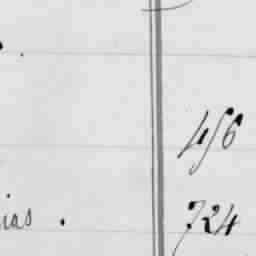 456
ias . 724